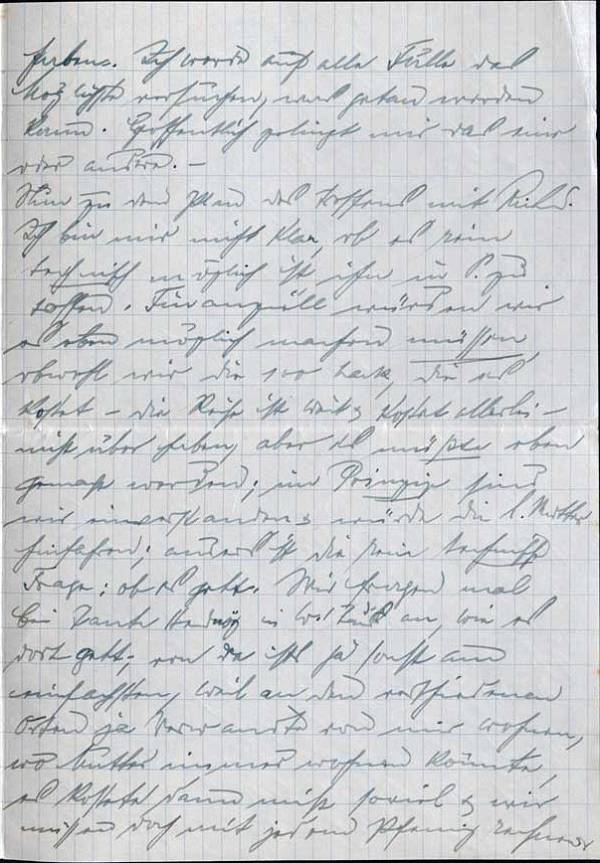 haben. Ich werde auf alle Fälle das
möglichste versuchen, was getan werden
kann. Hoffentlich gelingt mir das eine
oder andere. –
Nun zu dem Plan des Treffens mit
Ich bin mir nicht klar, ob es rein
technisch möglich ist ihn in S. zu
treffen. Finanziell würden wir
es eben möglich machen müssen,
obwohl wir die 100 Mark, die es
kostet – die Reise ist weit & kostet allerlei –
nicht über haben, aber es müsste eben
gemacht werden; im Prinzip sind
wir einverstanden & würde die l. Mutter
hinfahren; anders ist die rein technische
Frage: ob es geht. Wir fragen mal
bei Tante Hedwig in an, wie es
dort geht; von da ists ja sonst am
einfachsten, weil an den verschiedenen
Orten ja Verwandte von mir wohnen,
wo Mutter immer wohnen könnte,
es kostete dann nicht soviel & wir
müssen doch mit jedem Pfennig rechnen